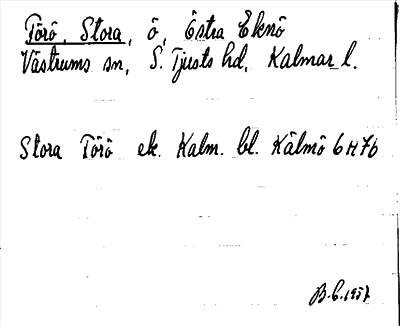 Törö, Stora, ö, Östra Eknö
Västrums sn, S. Tjusts hd, Kalmar l.
Stora Törö ek. Kalm. bl. Kälmö 6H7b
B.C. 1957